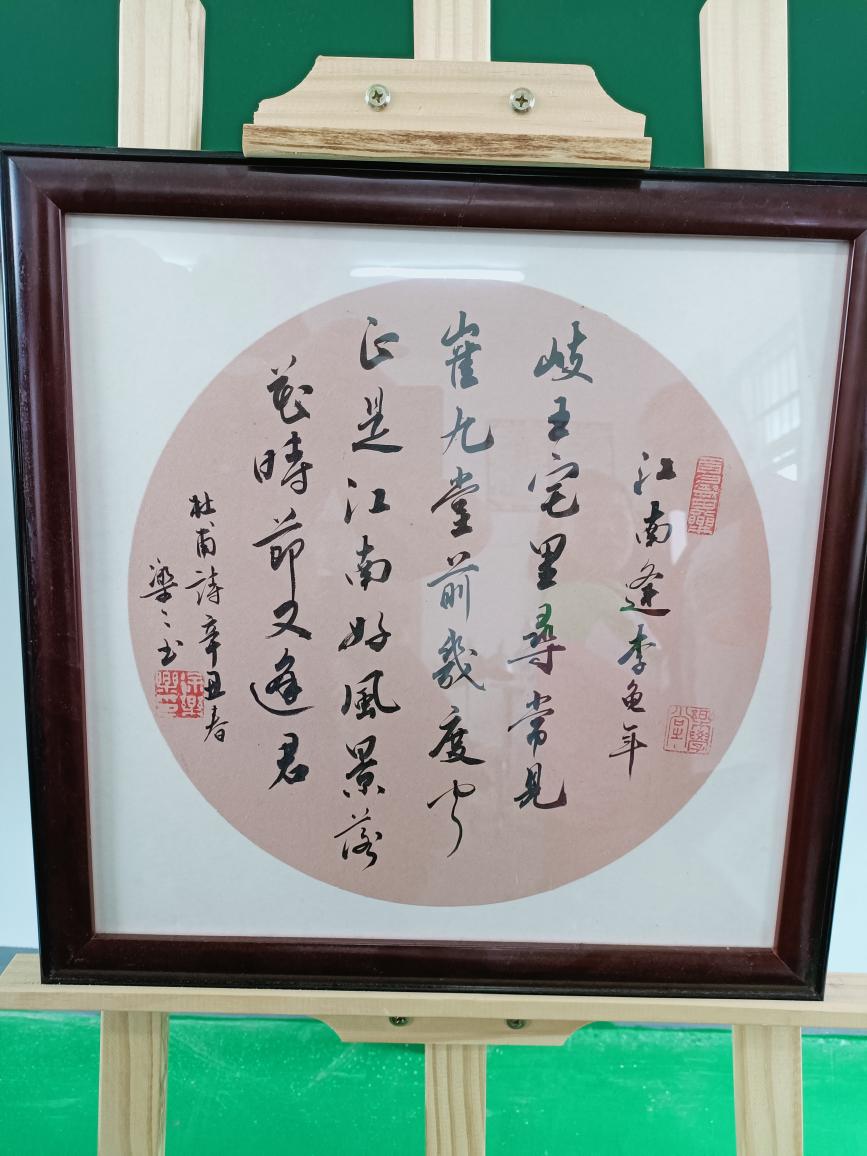 江南逢李龟年
岐王宅里尋常見
崔九堂前幾度闻
正是江南好風景落
花時節又逢君
杜甫詩辛丑春
樂之书